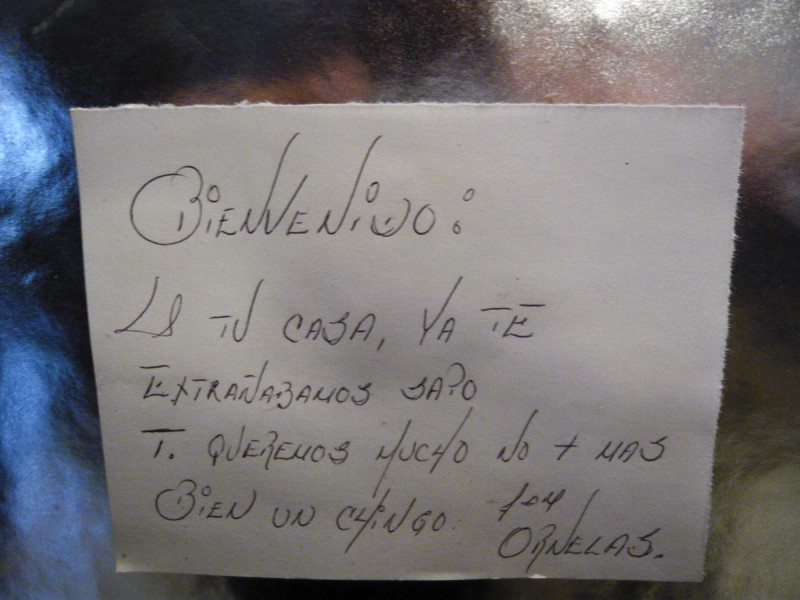 BIENVENIDO:
A TU CASA, YA TE
EXTRAÑABAMOS SAPO
T. QUEREMOS MUCHO NO + MAS
BIEN UN CHINGO
ORNELAS.